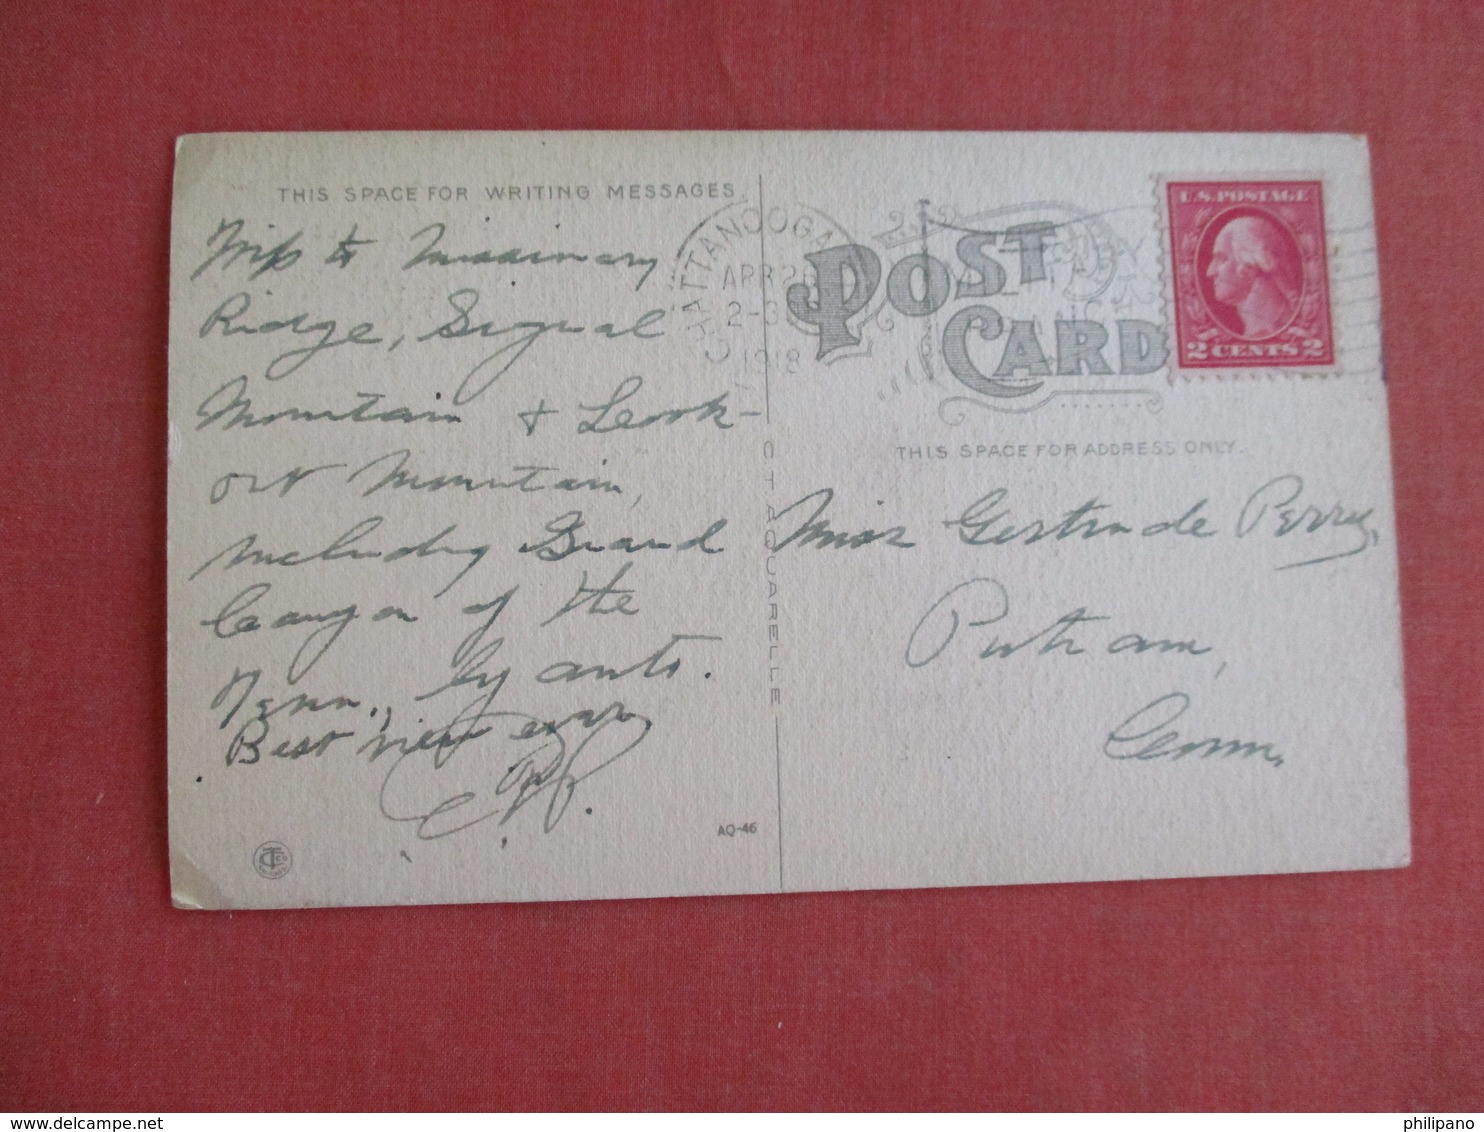 THIS SPACE FOR WRITING MESSAGES.
Trip to Missionary
Ridge, Signal
Mountain & Look-
out Mountain,
including Grand
Canyon of the
Tenn., by auto.
Best view ever.
AQ-46
CHATTANOOGA
APR 2
2-3
1918
POST CARD
U.S. POSTAGE
2 CENTS 2
THIS SPACE FOR ADDRESS ONLY.
C T AQUARELLE
Miss Gertrude Perry,
Putnam,
Conn.
philipano